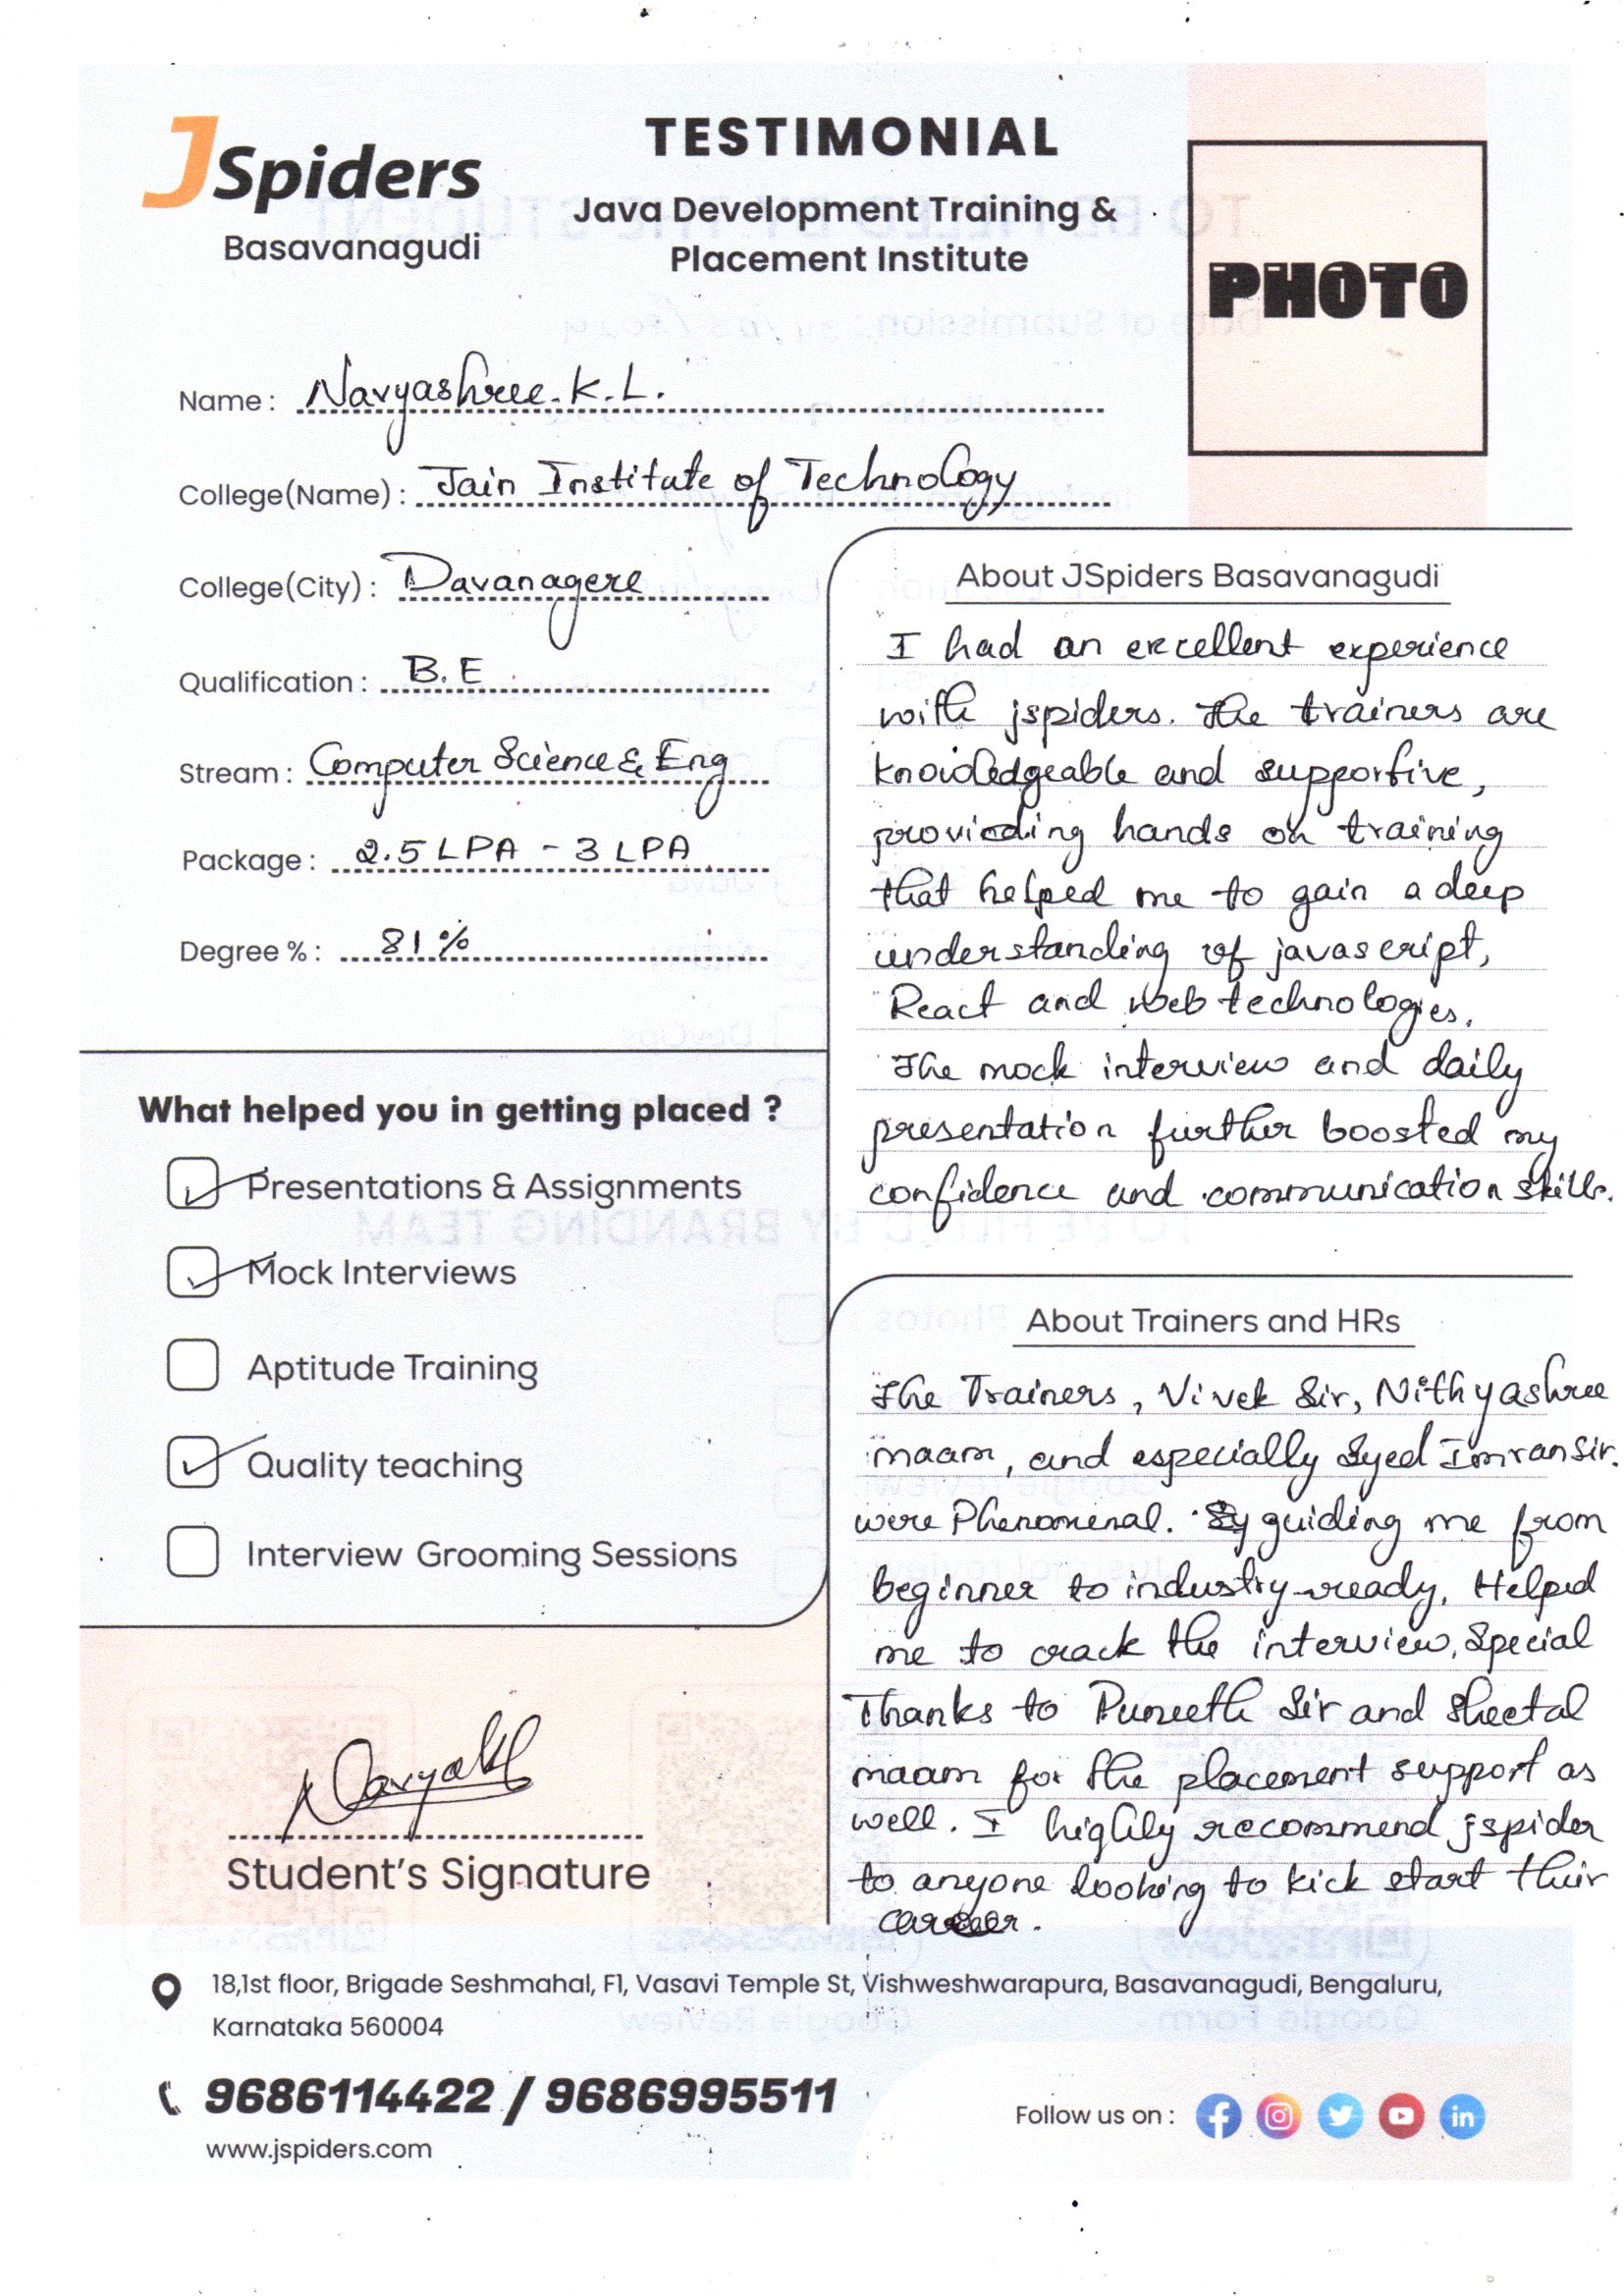 JSpiders
Basavanagudi
TESTIMONIAL
Java Development Training &
Placement Institute
PHOTO
Name : Navyashree. K. L.
College(Name) : Jain Institute of Technology
College(City) : Davanagere
Qualification : B.E
Stream : Computer Science & Eng
Package : 2.5 LPA - 3 LPA
Degree % : 81 %
What helped you in getting placed ?
Presentations & Assignments
Mock Interviews
Aptitude Training
Quality teaching
Interview Grooming Sessions
Navyakl
Student's Signature
About JSpiders Basavanagudi
I had an excellent experience
with jspiders. The trainers are
knowledgeable and supportive,
providing hands on training
that helped me to gain a deep
understanding of javascript,
React and Web technologies.
The mock interview and daily
presentation further boosted my
confidence and communication skills.
About Trainers and HRs
The Trainers, Vivek Sir, Nithyashree
maam, and especially Syed Imran sir.
were Phenomenal. By guiding me from
beginner to industry-ready, Helped
me to crack the interview. Special
Thanks to Puneeth Sir and Sheetal
maam for the placement support as
well. I highly recommend jspider
to anyone looking to kick start their
career.
18,1st floor, Brigade Seshmahal, F1, Vasavi Temple St, Vishweshwarapura, Basavanagudi, Bengaluru,
Karnataka 560004
9686114422 / 9686995511
www.jspiders.com
Follow us on :